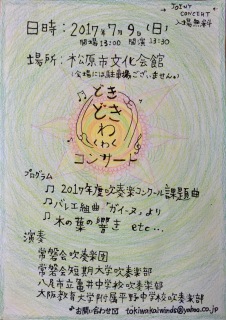 JOINT CONCERT
入場無料
日時：2017年7月9日(日)
開場13:00 開演13:30
場所：松原市文化会館
(会場には駐車場ございません。)
どき
どき
わく
わく
コンサート
プログラム
♫ 2017年度吹奏楽コンクール課題曲
♫ バレエ組曲「ガイーヌ」より
♫ 木の葉の響き etc...
演奏
常磐会吹奏楽団
常磐会短期大学吹奏楽部
八尾市立亀井中学校吹奏楽部
大阪教育大学附属平野中学校吹奏楽部
お問い合わせ図 tokiwakaiwinds@yahoo.co.jp